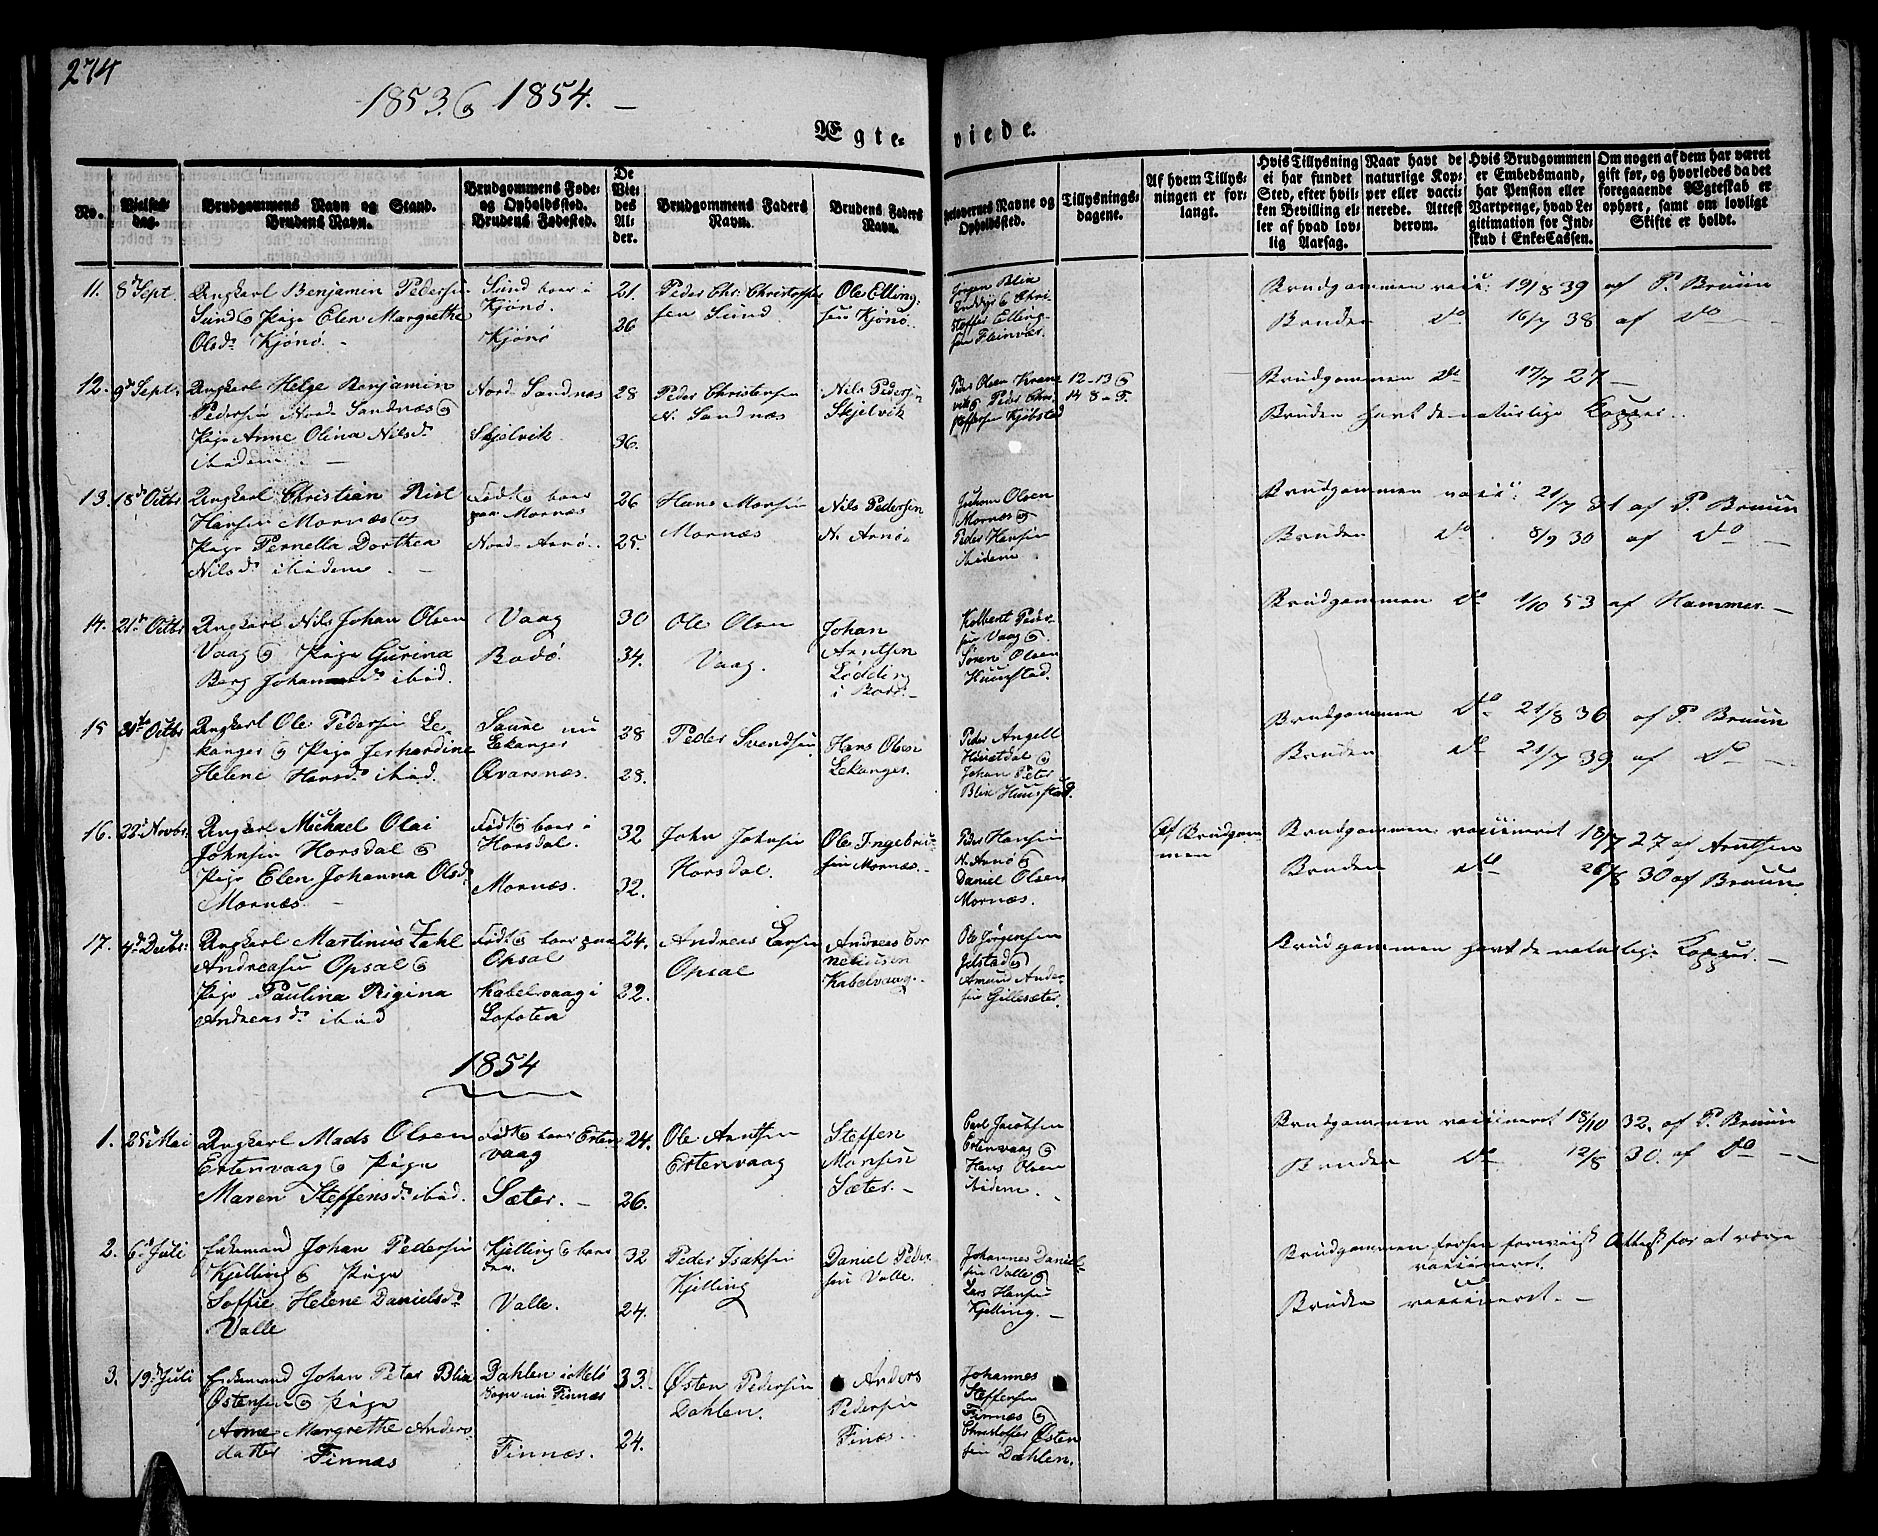 274
1853 & 1854. —
Ægte-
viede.
No.
Vielses-
dag.
Brudgommens Navn og Stand.
Brudens Navn.
Brudgommens Føde-
og Opholdssted.
Brudens Fødested.
De
Vie-
des
Al-
der.
Brudgommens Faders
Navn.
Brudens Faders
Navn.
Forlovernes Navne og
Opholdssted.
Tillysnings-
dagene.
Af hvem Tillys-
ningen er for-
langt.
Hvis Tillysning
ei har fundet
Sted, efter hvil-
ken Bevilling el-
ler af hvad lov-
lig Aarsag.
Naar havt de
naturlige Kop-
per eller vacci-
nerede. Attest
derom.
Hvis Brudgommen
er Embedsmand,
har Pension eller
Vartpenge, hvad Le-
gitimation for Ind-
skud i Enke-Cassen.
Om nogen af dem har været
gift før, og hvorledes da det
foregaaende Ægteskab er
ophørt, samt om lovligt
Skifte er holdt.
11. 8de Sept
Ungkarl Benjamin Pedersen
Sund & Pige Elen Margrethe
Olsd. Kjønø. —
Sund boer i
Kjønø.
Kjønø
21.
26
Peder Chr: Christoffer
sen Sund
Ole Elling
sen Kjønø.
Jørgen Blix
& Chri
stoffer Elling
sen Fleinvær.
Brudgommen vacc: 19/8 39 af P. Bruun
Bruden do 16/7 38 af do —
12. 9de Sept.
Ungkarl Helge Benjamin
Pedersen Nord Sandnæs &
Pige Anne Olina Nilsd.
ibidem. —
Nord Sandnæs
Skjelvik.
28
36.
Peder Christensen
N. Sandnæs
Nils Pedersen
Skjelvik
Peder Olsen Kran
vik & Peder Chri
stoffersen Kjøbstad
12-13 &
14 S. e. T.
Brudgommen do 17/7 27 —
Bruden havt de naturlige Kopper.
13. 18de Octbr
Ungkarl Christian Rist
Hansen Mornæs og
Pige Pernella Dorthea
Nilsd. ibidem. —
Født & boer
paa Mornæs
Nord-Arnø.
26
25.
Hans Monsen
Mornæs
Nils Pedersen
N. Arnø.
Johan Olsen
Mornæs &
Peder Hansen
ibidem
Brudgommen vacc: 21/7 31 af P. Bruun
Bruden do. 8/9 30 af do —
14. 21de Octbr
Ungkarl Nils Johan Olsen
Vaag & Pige Gurina
Berg Johansd. ibid.
Vaag
Bodø.
30
34.
Ole Olsen
Vaag.
Johan
Arntsen
Lødding
i Bodø. —
Kolbent Peder
sen Vaag &
Søren Olsen
Huunstad.
Brudgommen do 1/10 53 af Hammer —
15 Octbr
Ungkarl Ole Pedersen Le
kanger & Pige Jerhardine
Helene Hansd. ibid.
Saure nu
Lekanger
Qvarsnæs.
28
28.
Peder Svendsen
Hans Olsen
Lekanger.
Peder Angell
Hustdal &
Johan Peter
Blix Huunstad.
Brudgommen do 21/8 36 af P. Bruun
Bruden do 21/7 39 af do —
16. 22de Novbr.
Ungkarl Michael Olai
Johnsen Horsdal &
Pige Elen Johanna Olsd.
Mornæs. —
Født & boer i
Horsdal.
Mornæs.
32
32.
John Johnsen
Horsdal.
Ole Ingebrigt
sen Mornæs. —
Peder Hansen
N. Arnø &
Daniel Olsen
Mornæs.
Af Brudgom
men
Brudgommen vaccineret 18/7 27 af Arntsen
Bruden do 26/8 30 af Bruun
17. 4de Decbr:
Ungkarl Martinus Zahl
Andreasen Opsal &
Pige Paulina Rigina
Andreasd. ibid
Født & boer paa
Opsal
Kabelvaag i
Lofoten
24.
22.
Andreas Larsen
Opsal
Andreas Cor
neliusen
Kabelvaag. —
Ole Jørgensen
Jelstad &
Amund Ander
sen Gillesæter.
Brudgommen havt de naturlige Kopper. —
1854
1. 25de Mai
Ungkarl Mads Olsen
Ertenvaag & Pige
Maren Steffensd. ibid.
Født & boer Erten
vaag
Sæter. —
24.
26.
Ole Arntsen
Ertenvaag
Steffen
Monsen
Sæter. —
Carl Jacobsen
Ertenvaag &
Hans Olsen
ibidem. —
Brudgommen vaccineret 18/10 32. af P. Bruun
Bruden do 12/8 30. af do —
2. 6de Juli
Enkemand Johan Pedersen
Kjelling & Pige
Soffie Helene Danielsd.
Valle
Kjelling & boer
der.
Valle.
32
24.
Peder Isaksen
Kjelling
Daniel Peder
sen Valle.
Johannes Daniel
sen Valle &
Lars Hansen
Kjelling. —
Brudgommen forhen forevist Attest for at være
vaccineret.
Bruden vaccineret. —
3. 19de Juli
Enkemand Johan Peter Blix
Østensen & Pige
Anne Margrethe Anders
datter Finnæs
Dahlen i Melø
Sogn nu Finnæs
Finnæs.
33.
24.
Østen Pedersen
Dahlen.
Anders
Pedersen
Finæs.
Johannes
Steffensen
Finnæs &
Christoffer Østen
sen Dahlen.